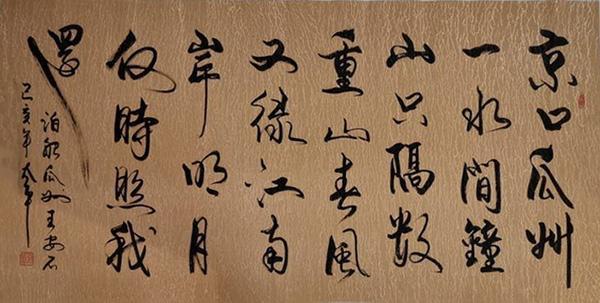 京口瓜州
一水間鐘
山只隔数
重山春風
又緑江南
岸明月
何時照我
還
泊船瓜州王安石
己亥年